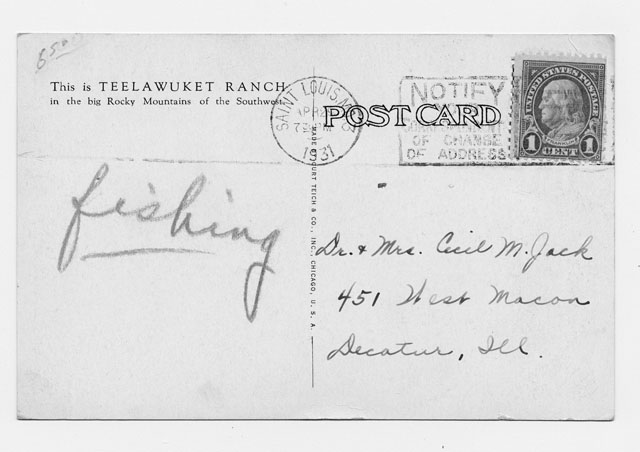 This is TEELAWUKET RANCH
in the big Rocky Mountains of the Southwest.
SAINT LOUIS, MO.
1931
NOTIFY
OF CHANGE
OF ADDRESS
POST CARD
UNITED STATES POSTAGE
FRANKLIN
1 CENT 1
fishing
MADE BY CURT TEICH & CO., INC., CHICAGO, U. S. A.
Dr. & Mrs. Cecil M. Jack
451 West Macon
Decatur, Ill.